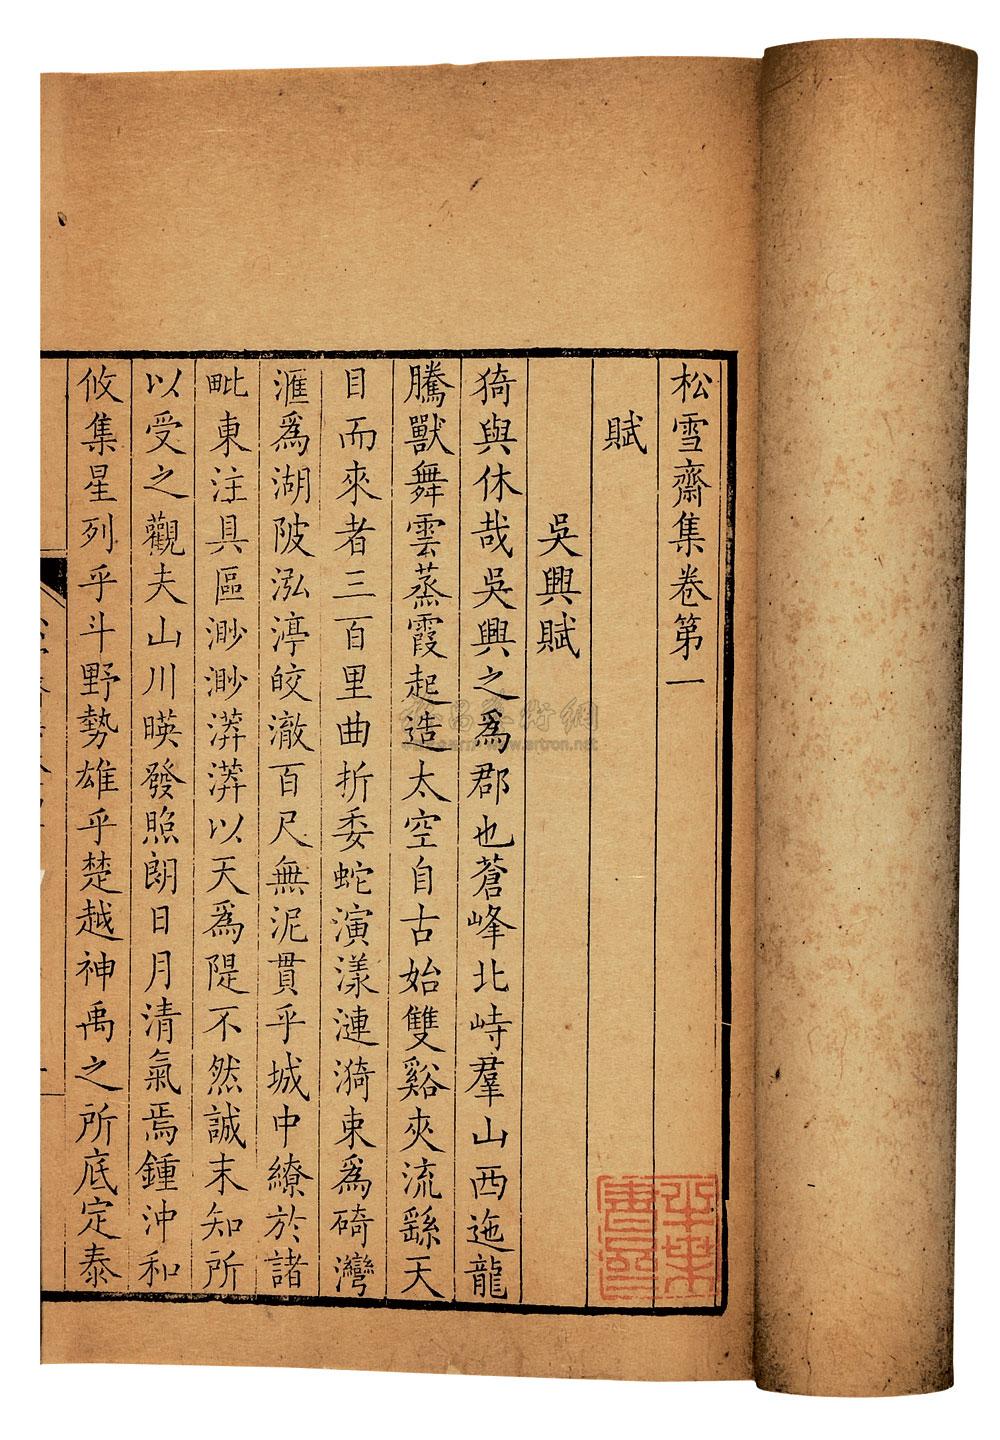 松雪齋集卷第一
賦
吳興賦
猗與休哉吳興之爲郡也蒼峰北峙羣山西迤龍
騰獸舞雲蒸霞起造太空自古始雙谿夾流繇天
目而來者三百里曲折委蛇演漾漣漪束爲碕灣
滙爲湖陂泓渟皎澈百尺無泥貫乎城中繚於諸
毗東注具區渺渺漭漭以天爲隄不然誠末知所
以受之觀夫山川暎發照朗日月清氣焉鍾沖和
攸集星列乎斗野勢雄乎楚越神禹之所底定泰
www.artron.net